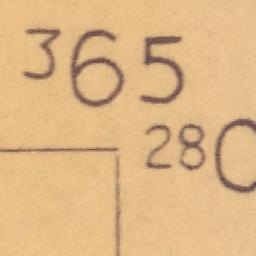 365
280